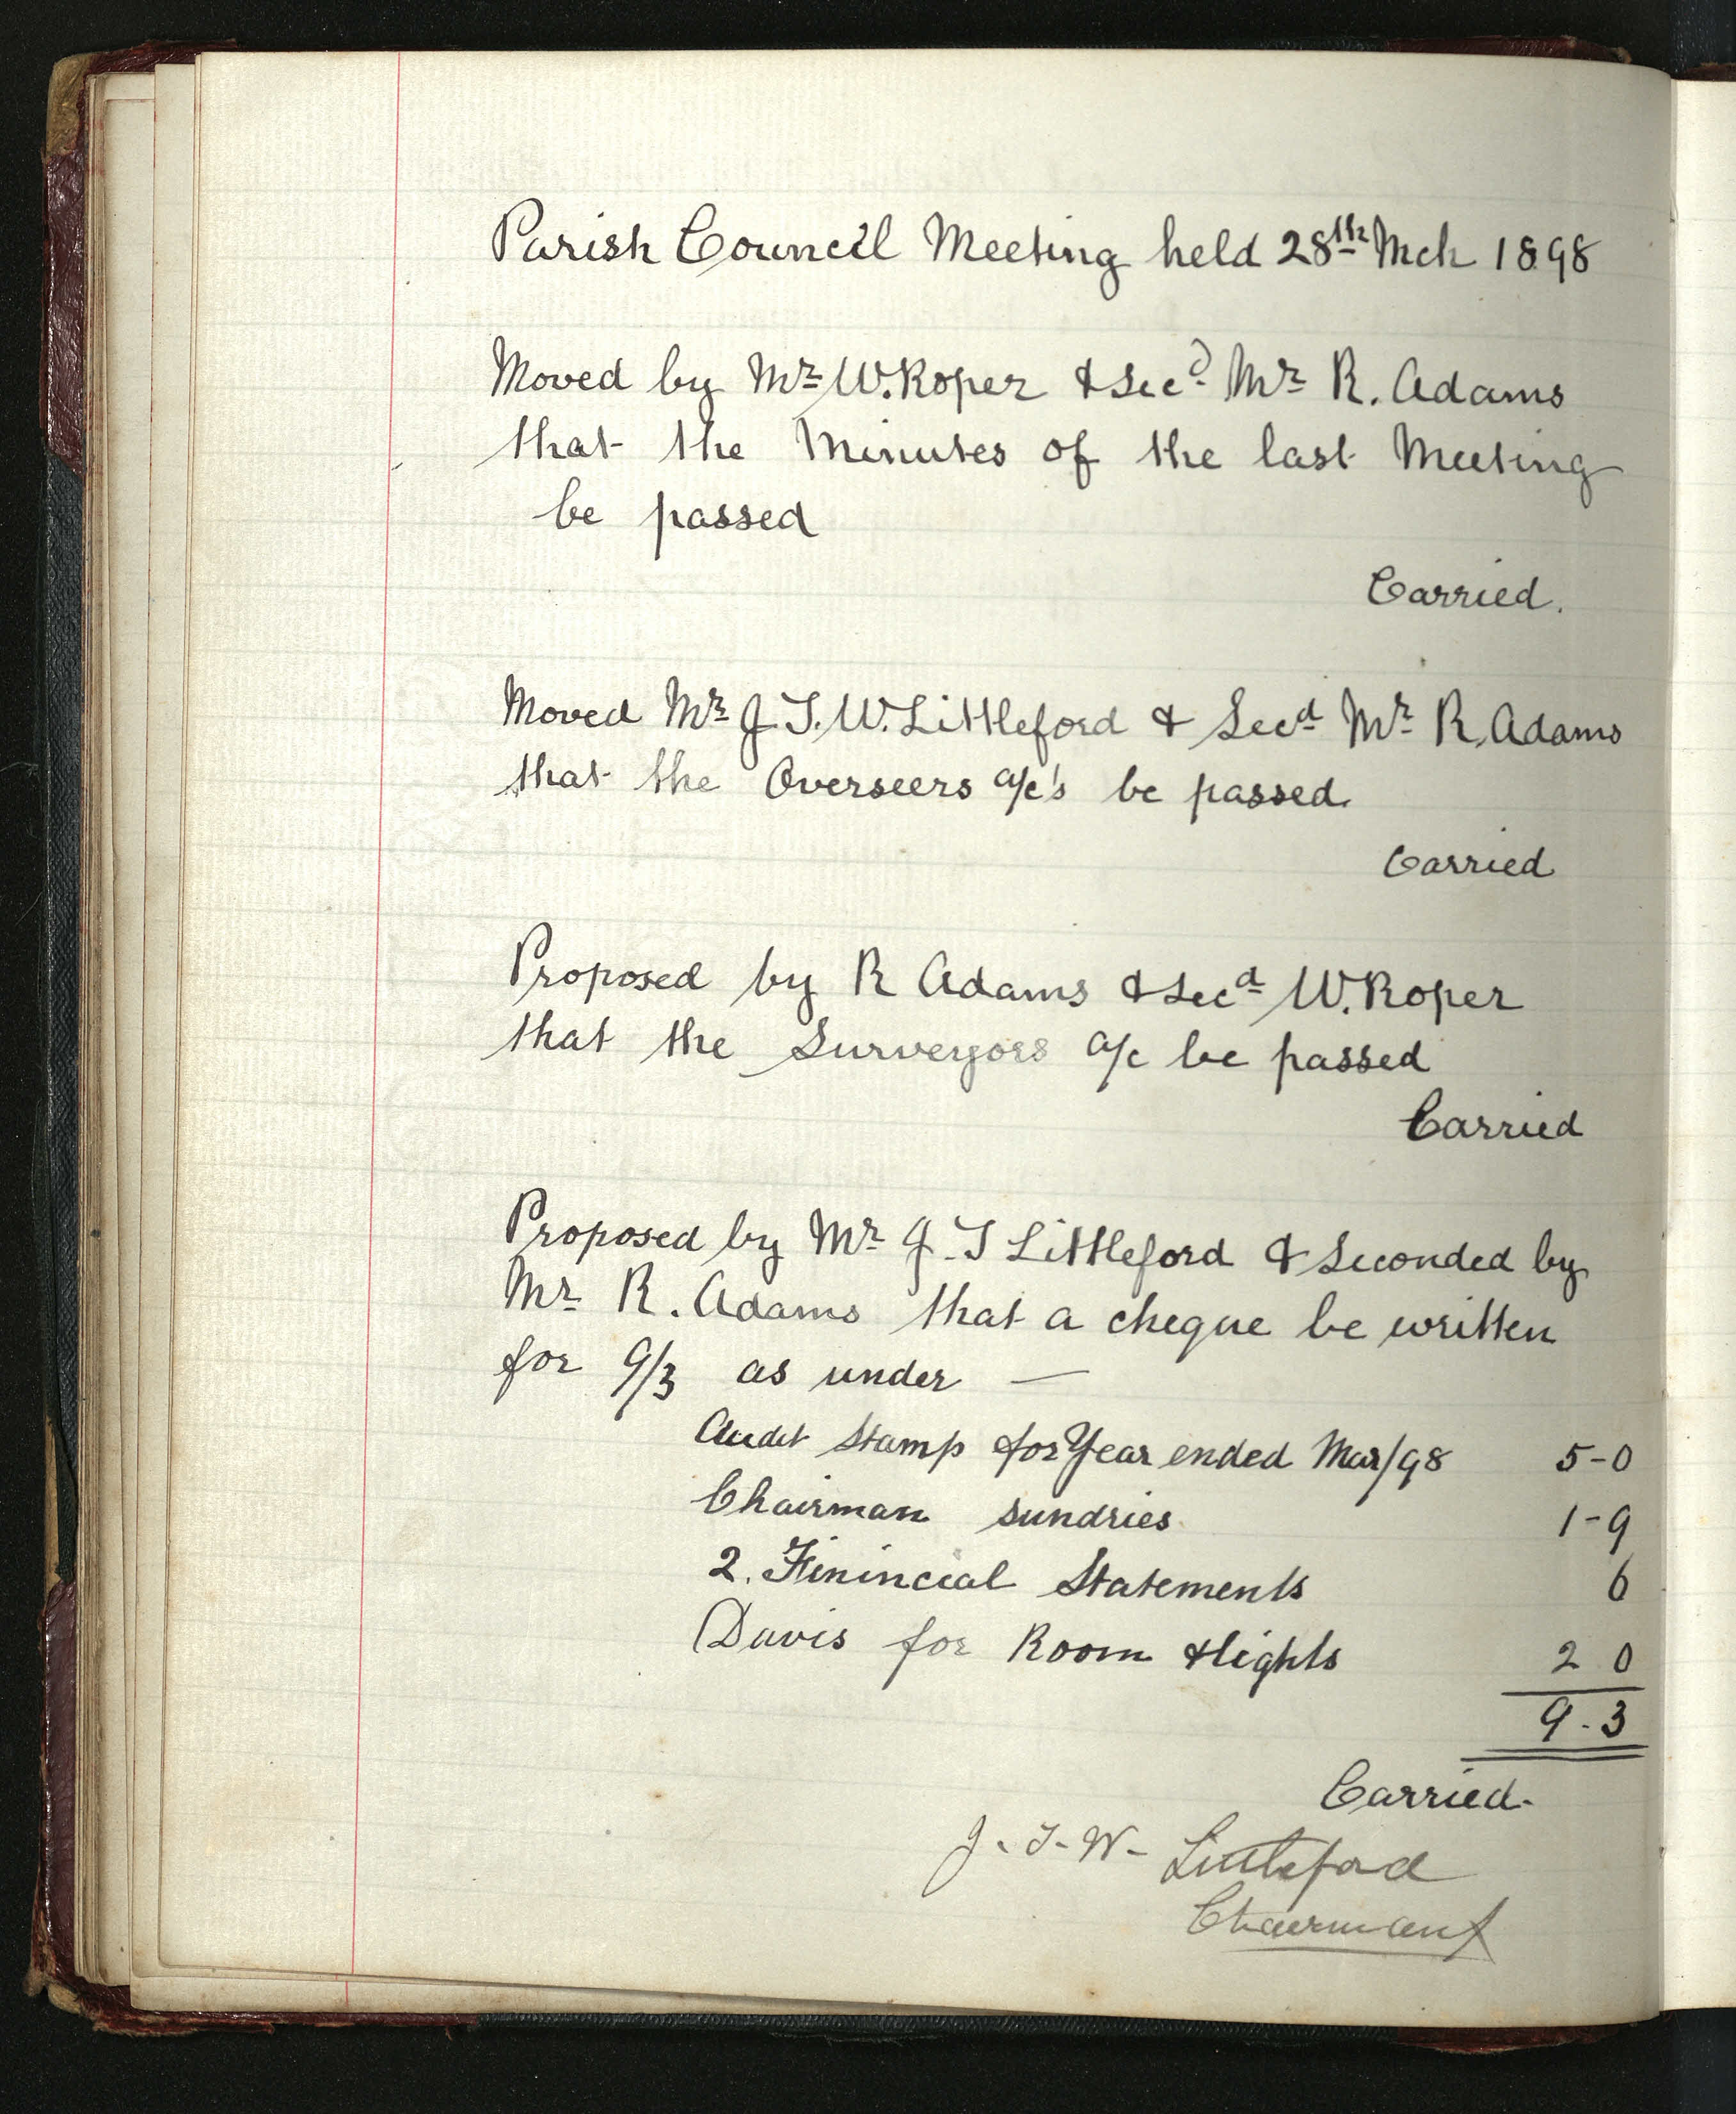 Parish Council Meeting held 28th Mch 1898
Moved by Mr W. Roper & Secd Mr R. Adams
that the Minutes of the last Meeting
be passed
Carried.
Moved Mr J T. W. Littleford & Secd Mr R. Adams
that the Overseers a/c's be passed.
Carried
Proposed by R Adams & Secd W. Roper
that the Surveyors a/c be passed
Carried
Proposed by Mr J. T Littleford & Seconded by
Mr R. Adams that a cheque be written
for 9/3 as under —
Audit Stamp for Year ended Mar/98 5-0
Chairman sundries 1-9
2. Finincial Statements 6
Davis for Room & lights 2 0
9.3
Carried.
J. T. W. Littleford
Chairman